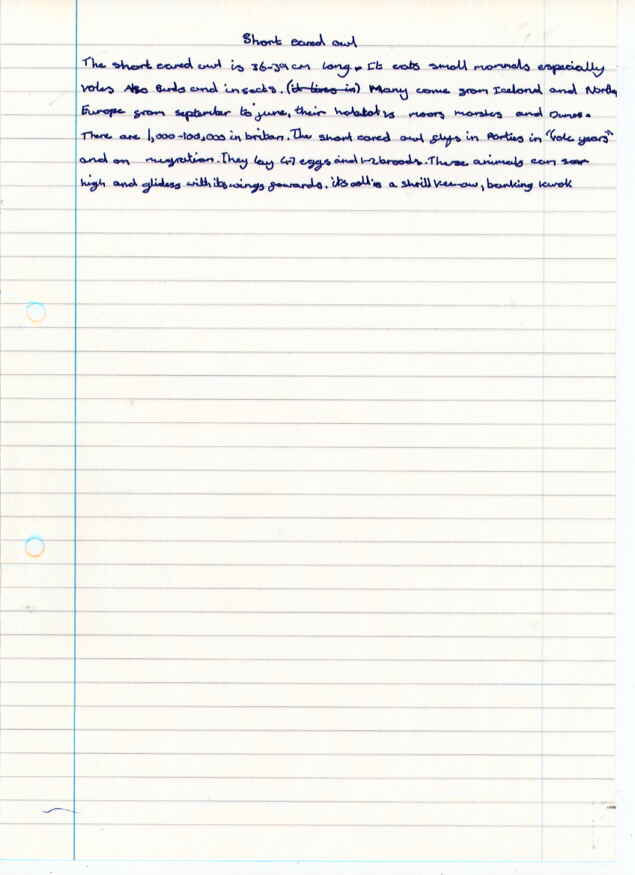 Short eared owl
The short eared owl is 36-39cm long. It eats small mammals especially
voles Also Birds and insects. (it lives in) Many come from Iceland and North
Europe from septembr to june, their habitat is moors marshes and Dunes.
There are 1,000-100,000 in britan. The short eared owl flys in Parties in "vole years"
and on migration. They lay 4-7 eggs and 1-2 broods. These animals can soar
high and glides with its wings forwards. its call is a shrill kee-aw, barking kwok